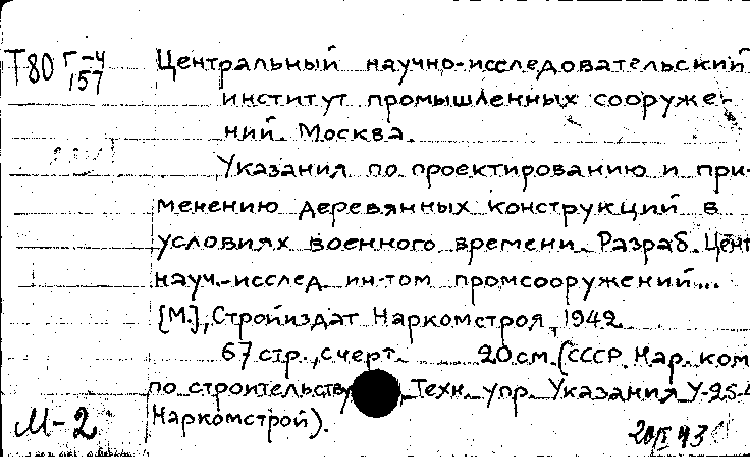 Т80 Г-4
157
Центральный научно-исследовательский
институт промышленных сооруже-
ний. Москва.
Указания по проектированию и при-
менению деревянных конструкций в
условиях военного времени. Разраб. Цент
науч.-исслед. ин-том промсооружений...
[М.], Стройиздат Наркомстроя, 1942
67 стр., с черт. 20 см. (СССР. Нар. ком
по строительству, Техн. упр. Указания У-25-4
Наркомстрой).
М-2